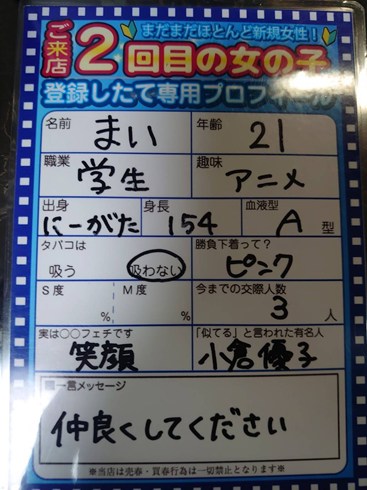 まだまだほとんど新規女性！
ご来店2回目の女の子
登録したて専用プロフィール
名前 まい 年齢 21
職業 学生 趣味 アニメ
出身 にーがた 身長 154 血液型 A 型
タバコは 吸う 吸わない 勝負下着って？ ピンク
S度 % M度 % 今までの交際人数 3 人
実は○○フェチです 笑顔 「似てる」と言われた有名人 小倉優子
■一言メッセージ
仲良くしてください
※当店は売春・買春行為は一切禁止となります※